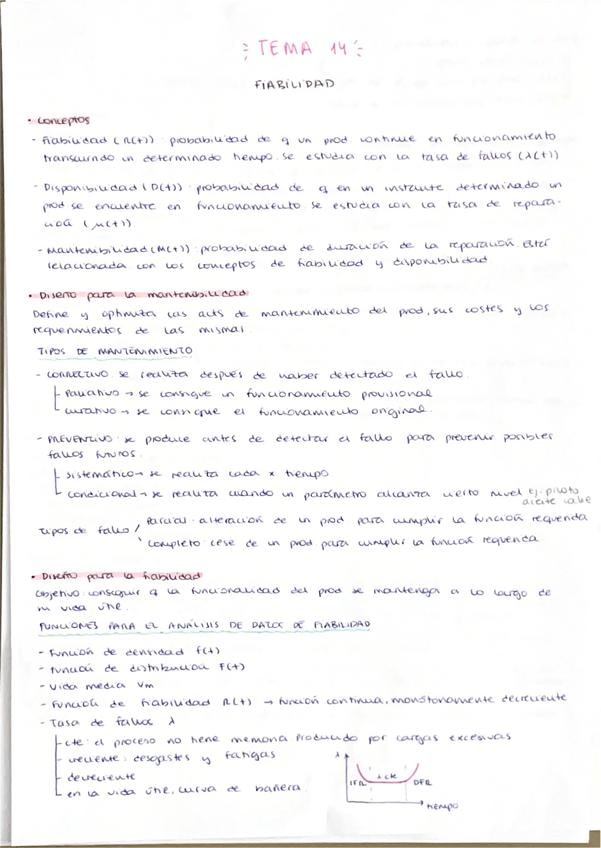 TEMA 14
FIABILIDAD
• Conceptos
- Fiabilidad (R(t)): probabilidad de q un prod continue en funcionamiento
transcurrido un determinado tiempo. Se estudia con la tasa de fallos (λ(t))
- Disponibilidad (D(t)): probabilidad de q en un instante determinado un
prod se encuentre en funcionamiento. Se estudia con la tasa de repara-
ción (μ(t))
- Mantenibilidad (M(t)): probabilidad de duración de la reparación. Está
relacionada con los conceptos de fiabilidad y disponibilidad
• Diseño para la mantenibilidad
Define y optimiza las acts de mantenimiento del prod, sus costes y los
requerimientos de las mismas.
TIPOS DE MANTENIMIENTO
- CORRECTIVO: se realiza después de haber detectado el fallo.
Paliativo → se consigue un funcionamiento provisional
curativo → se consigue el funcionamiento original.
- PREVENTIVO: se produce antes de detectar el fallo para prevenir posibles
fallos futuros.
sistemático → se realiza cada x tiempo
condicional → se realiza cuando un parámetro alcanza cierto nivel ej. piloto
aceite
Tipos de fallo / Parcial: alteración de un prod para cumplir la función requerida
completo: cese de un prod para cumplir la función requerida
• Diseño para la fiabilidad
Objetivo: conseguir q la funcionalidad del prod se mantenga a lo largo de
su vida útil.
FUNCIONES PARA EL ANÁLISIS DE DATOS DE FIABILIDAD
- Función de densidad f(t)
- Función de distribución F(t)
- Vida media Vm
- Función de fiabilidad R(t) → función continua, monótonamente decreciente
- Tasa de fallos λ
cte: el proceso no tiene memoria. Producido por cargas excesivas
creciente: desgastes y fatigas
decreciente
en la vida útil, curva de bañera.
λ
IFR
λ cte
DFR
tiempo